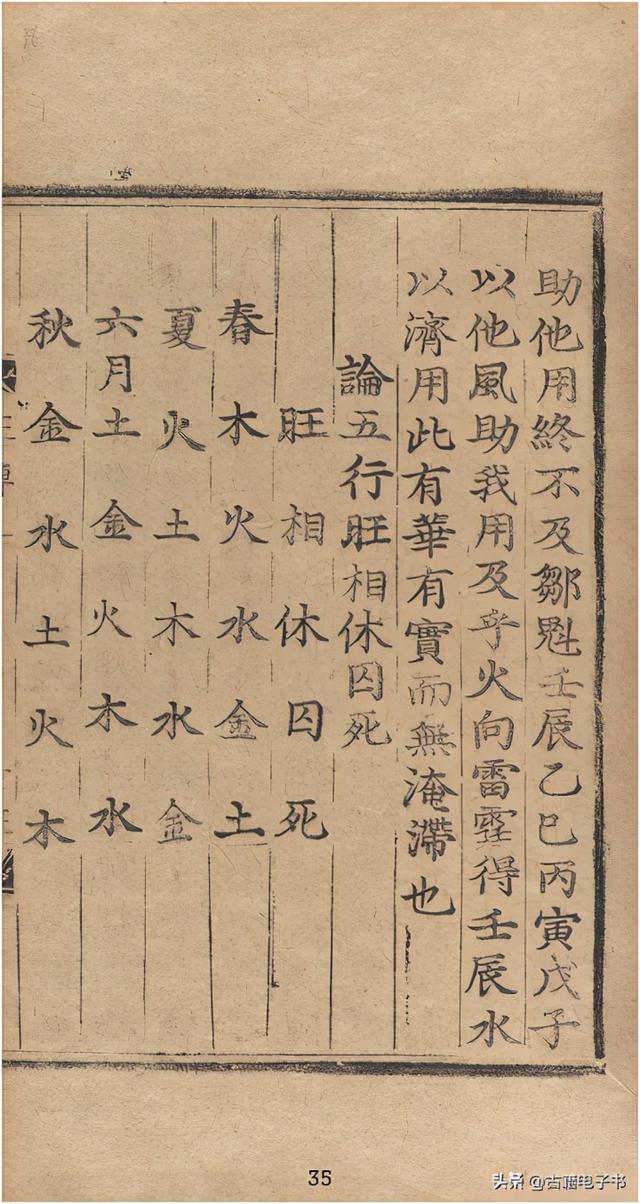 助他用終不及鄒魁壬辰乙巳丙寅戊子
以他風助我用及乎火向雷霆得壬辰水
以濟用此有華有實而無淹滯也
論五行旺相休囚死
旺相休囚死
春木火水金土
夏火土木水金
六月土金火木水
秋金水土火木
35
头条 @古籍电子书